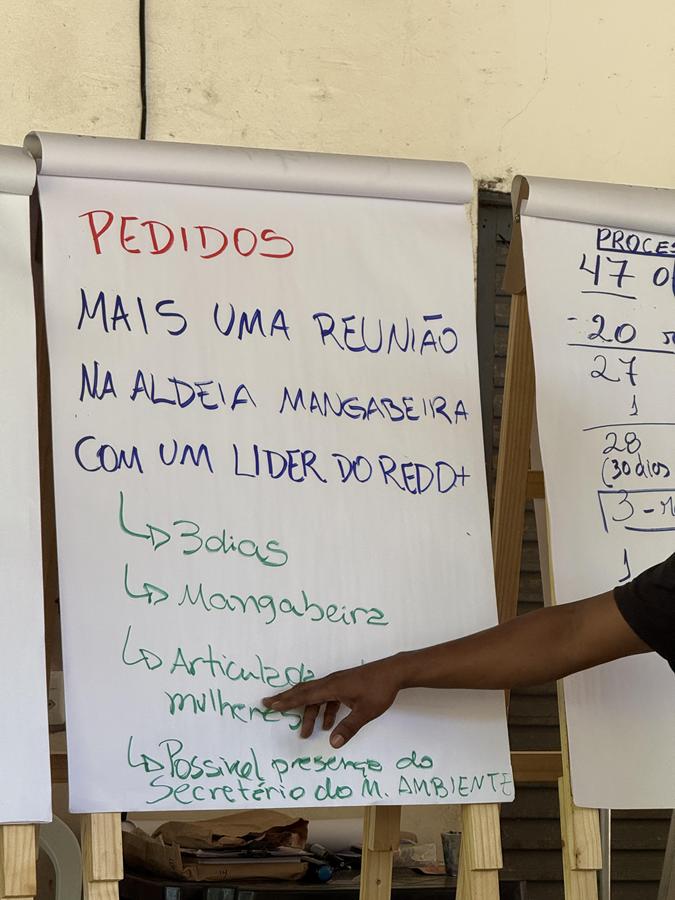 PEDIDOS
MAIS UMA REUNIÃO
NA ALDEIA MANGABEIRA
COM UM LIDER DO REDD+
↳ 3 dias
↳ Mangabeira
↳ 
mulheres
↳ Possivel presença do
Secretário do M. AMBIENTE
47
- 20
27
1
28
(30 dias
3 -
1